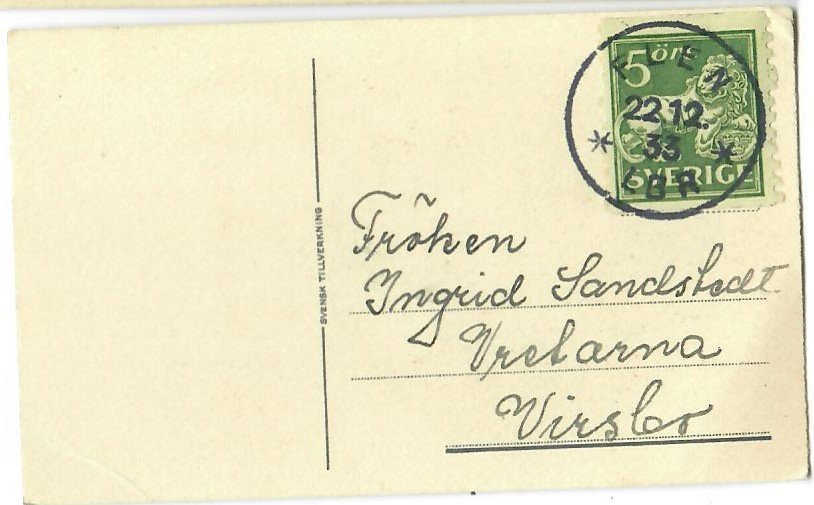 5 ÖRE
SVERIGE
FLEN
22 12.
33
LBR
SVENSK TILLVERKNING
Fröken
Ingrid Sandstedt
Vretarna
Virsbo